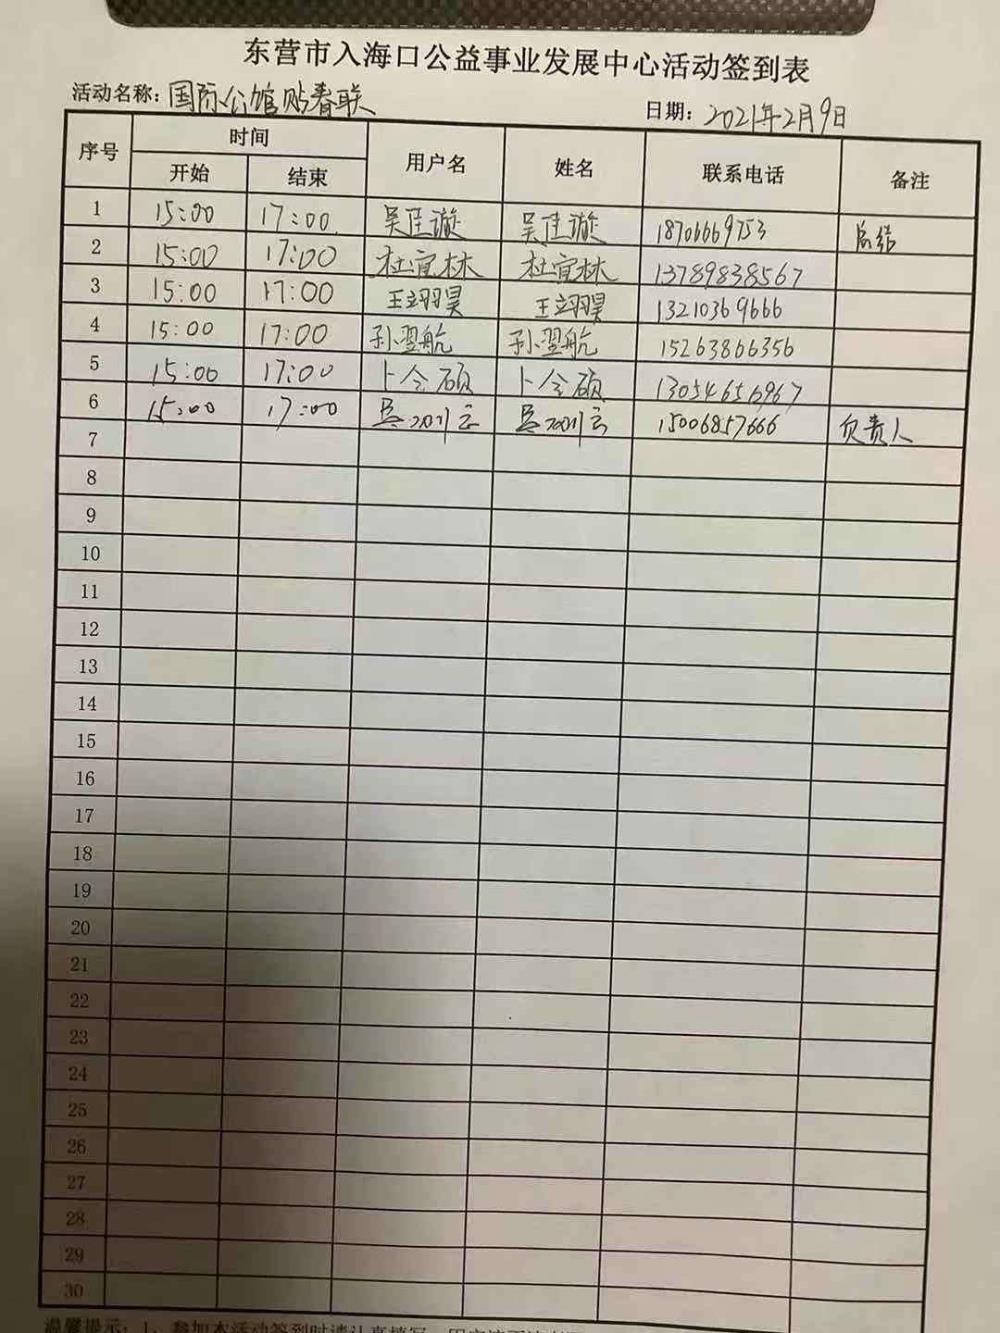 东营市入海口公益事业发展中心活动签到表
活动名称：国际公馆贴春联 日期：2021年2月9日
序号 时间 用户名 姓名 联系电话 备注
开始 结束
1 15:00 17:00 吴佳璇 吴佳璇 18706669753 总结
2 15:00 17:00 杜宜林 杜宜林 13789838567
3 15:00 17:00 王翊昊 王翊昊 13210369666
4 15:00 17:00 孙翌航 孙翌航 15263866356
5 15:00 17:00 卜令硕 卜令硕 13054656967
6 15:00 17:00 15006857666 负责人
7
8
9
10
11
12
13
14
15
16
17
18
19
20
21
22
23
24
25
26
27
28
29
30
温馨提示：1、参加本活动签到时请认真填写